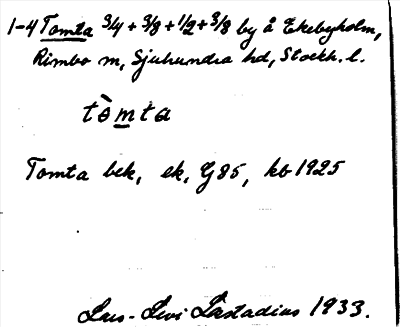 1-4 Tomta 3/4 + 3/8 + 1/2 + 3/8 by å Ekebyholm,
Rimbo sn, Sjuhundra hd, Stockh. l.
tòmta
Tomta bek, ek, G85, kb 1925
Lars-Levi Læstadius 1933.